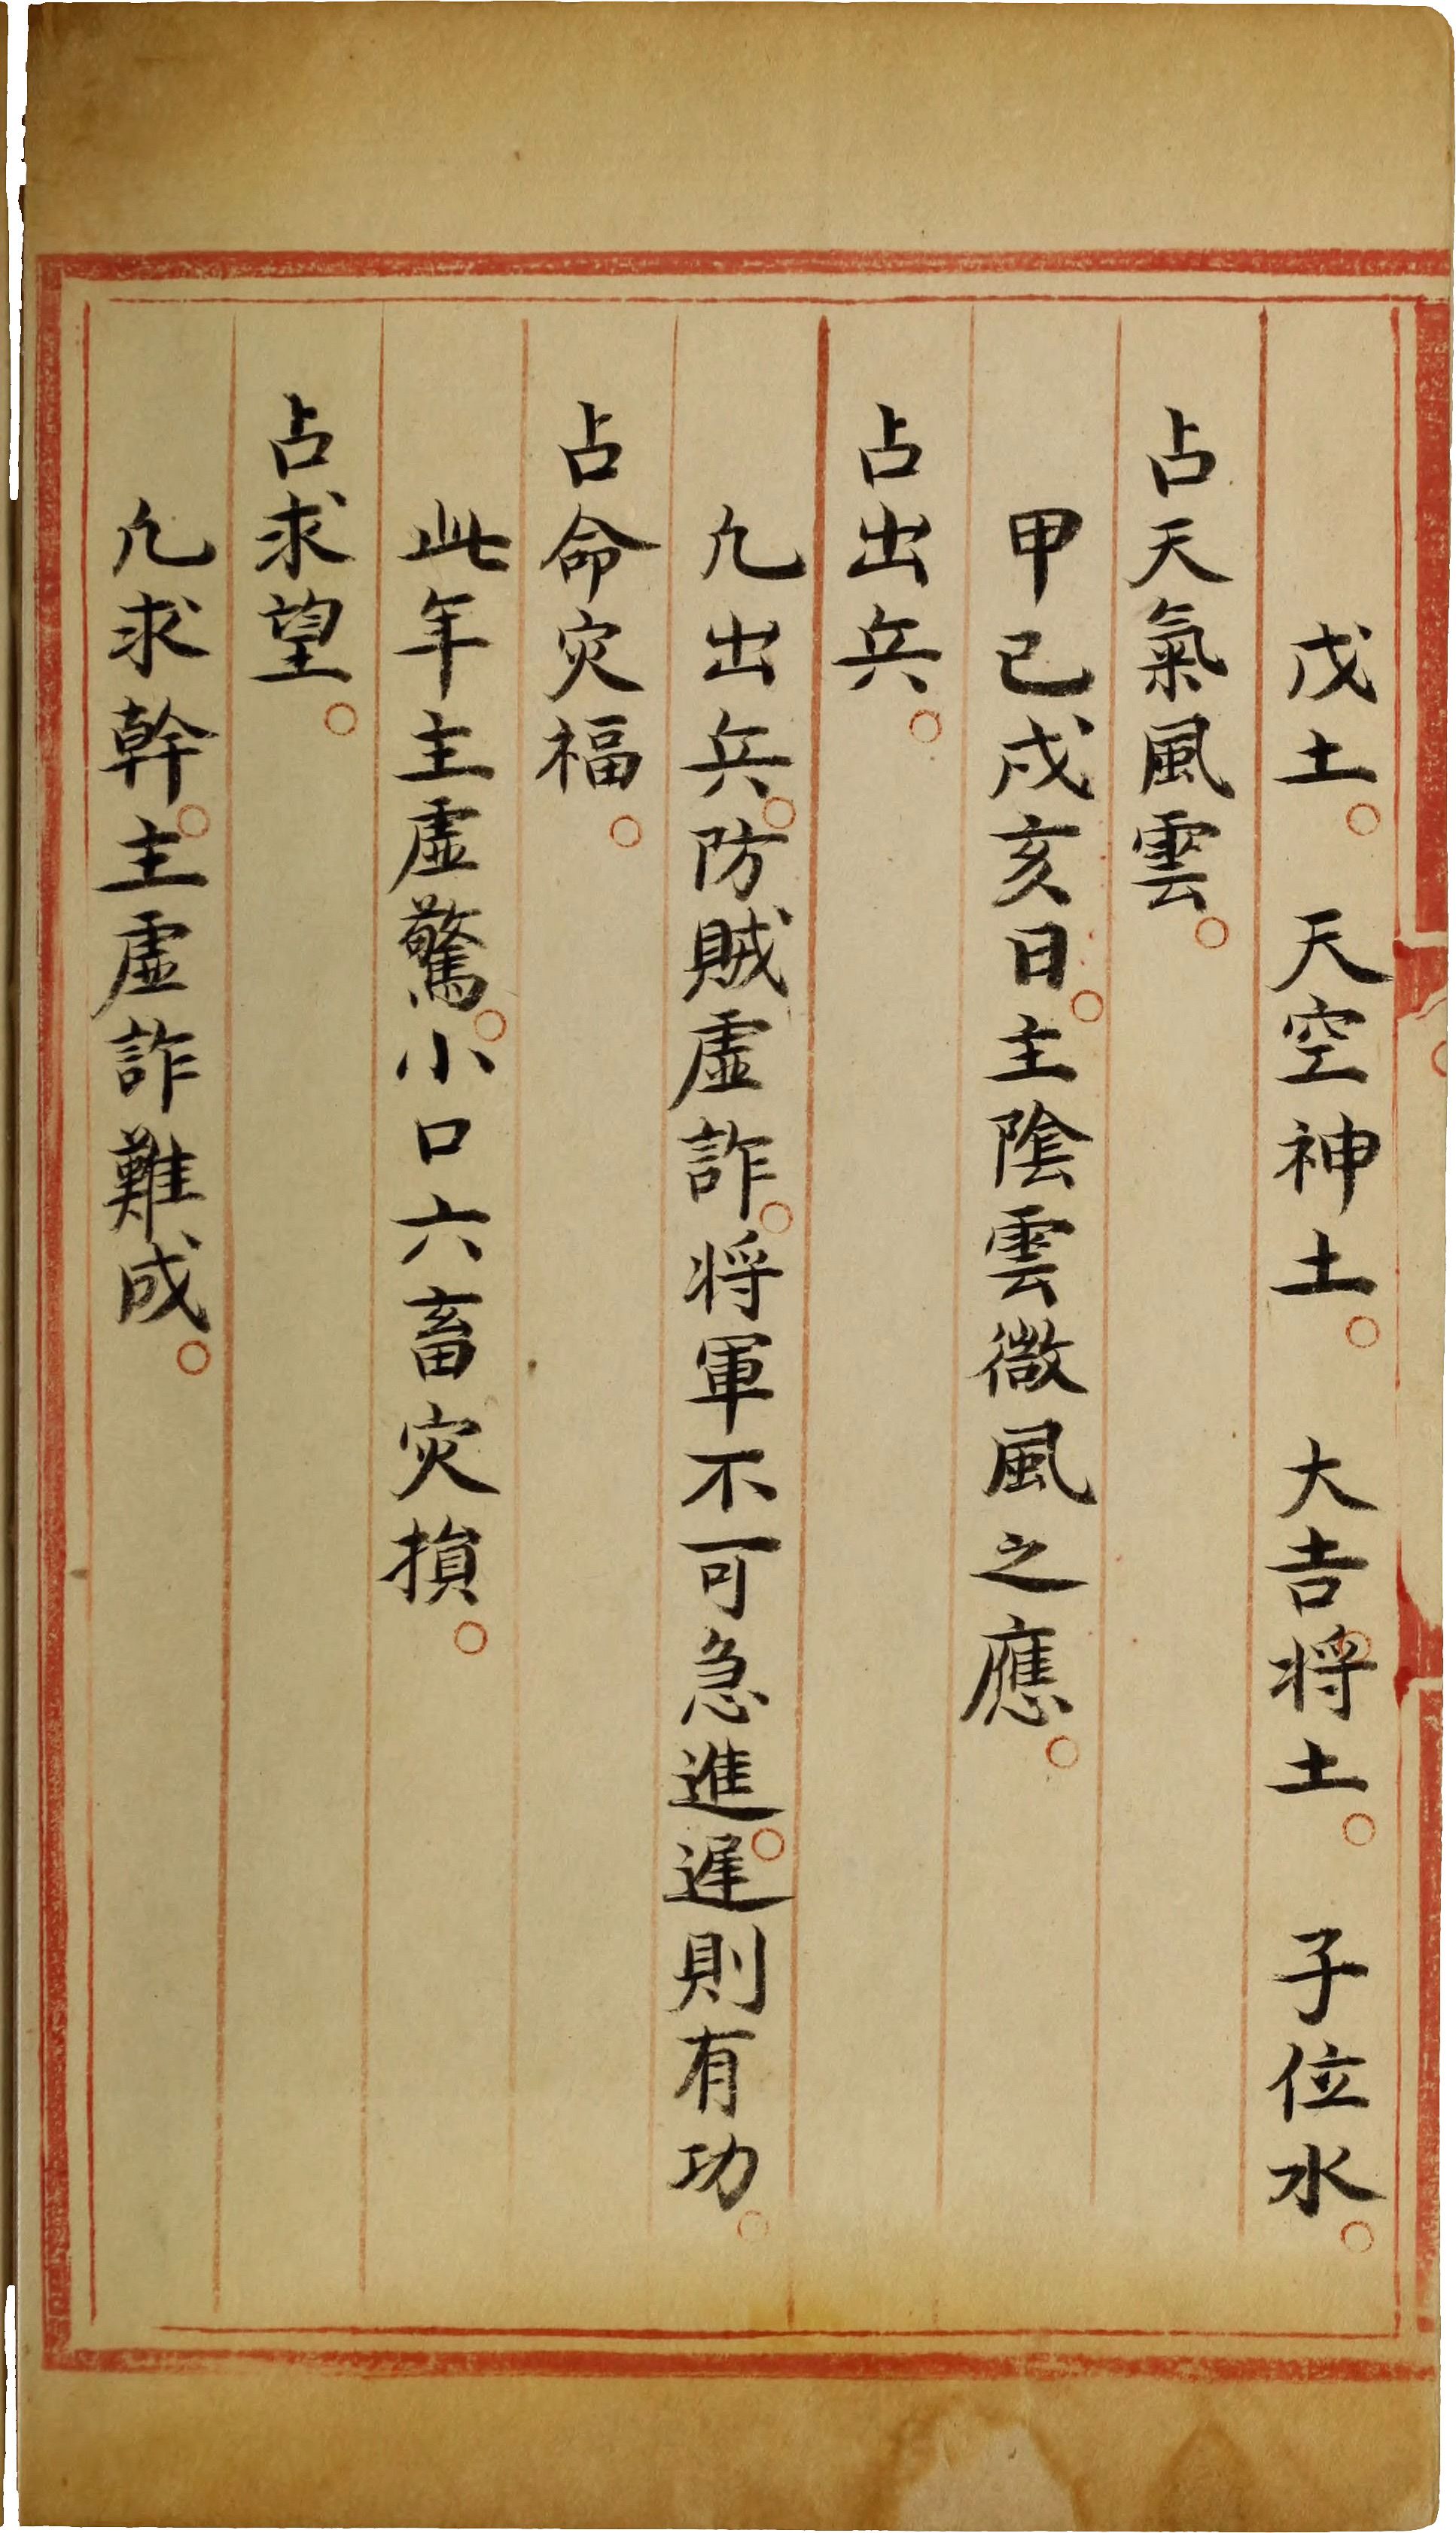 戊土。　天空神土。　大吉将土。　子位水。
占天氣風雲。
甲己戌亥日。主陰雲微風之應。
占出兵。
凢出兵。防賊虛詐。将軍不可急進。遲則有功。
占命灾福。
此年主虛驚。小口六畜灾損。
占求望。
凢求幹。主虛詐難成。